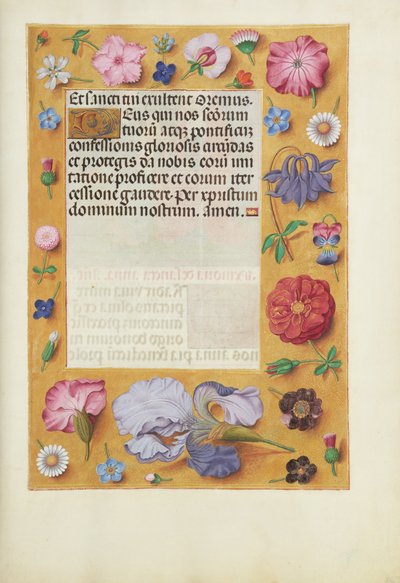 Et sancti tui exultent Oremus.
Deus qui nos sc̄orum
tuorū atq̨ pontificū
confessionis gloriosis circūdas
et protegis da nobis eorū imi
tatione proficere et eorum iter
cessione gaudere. Per xp̄istum
dominum nostrum. amen.